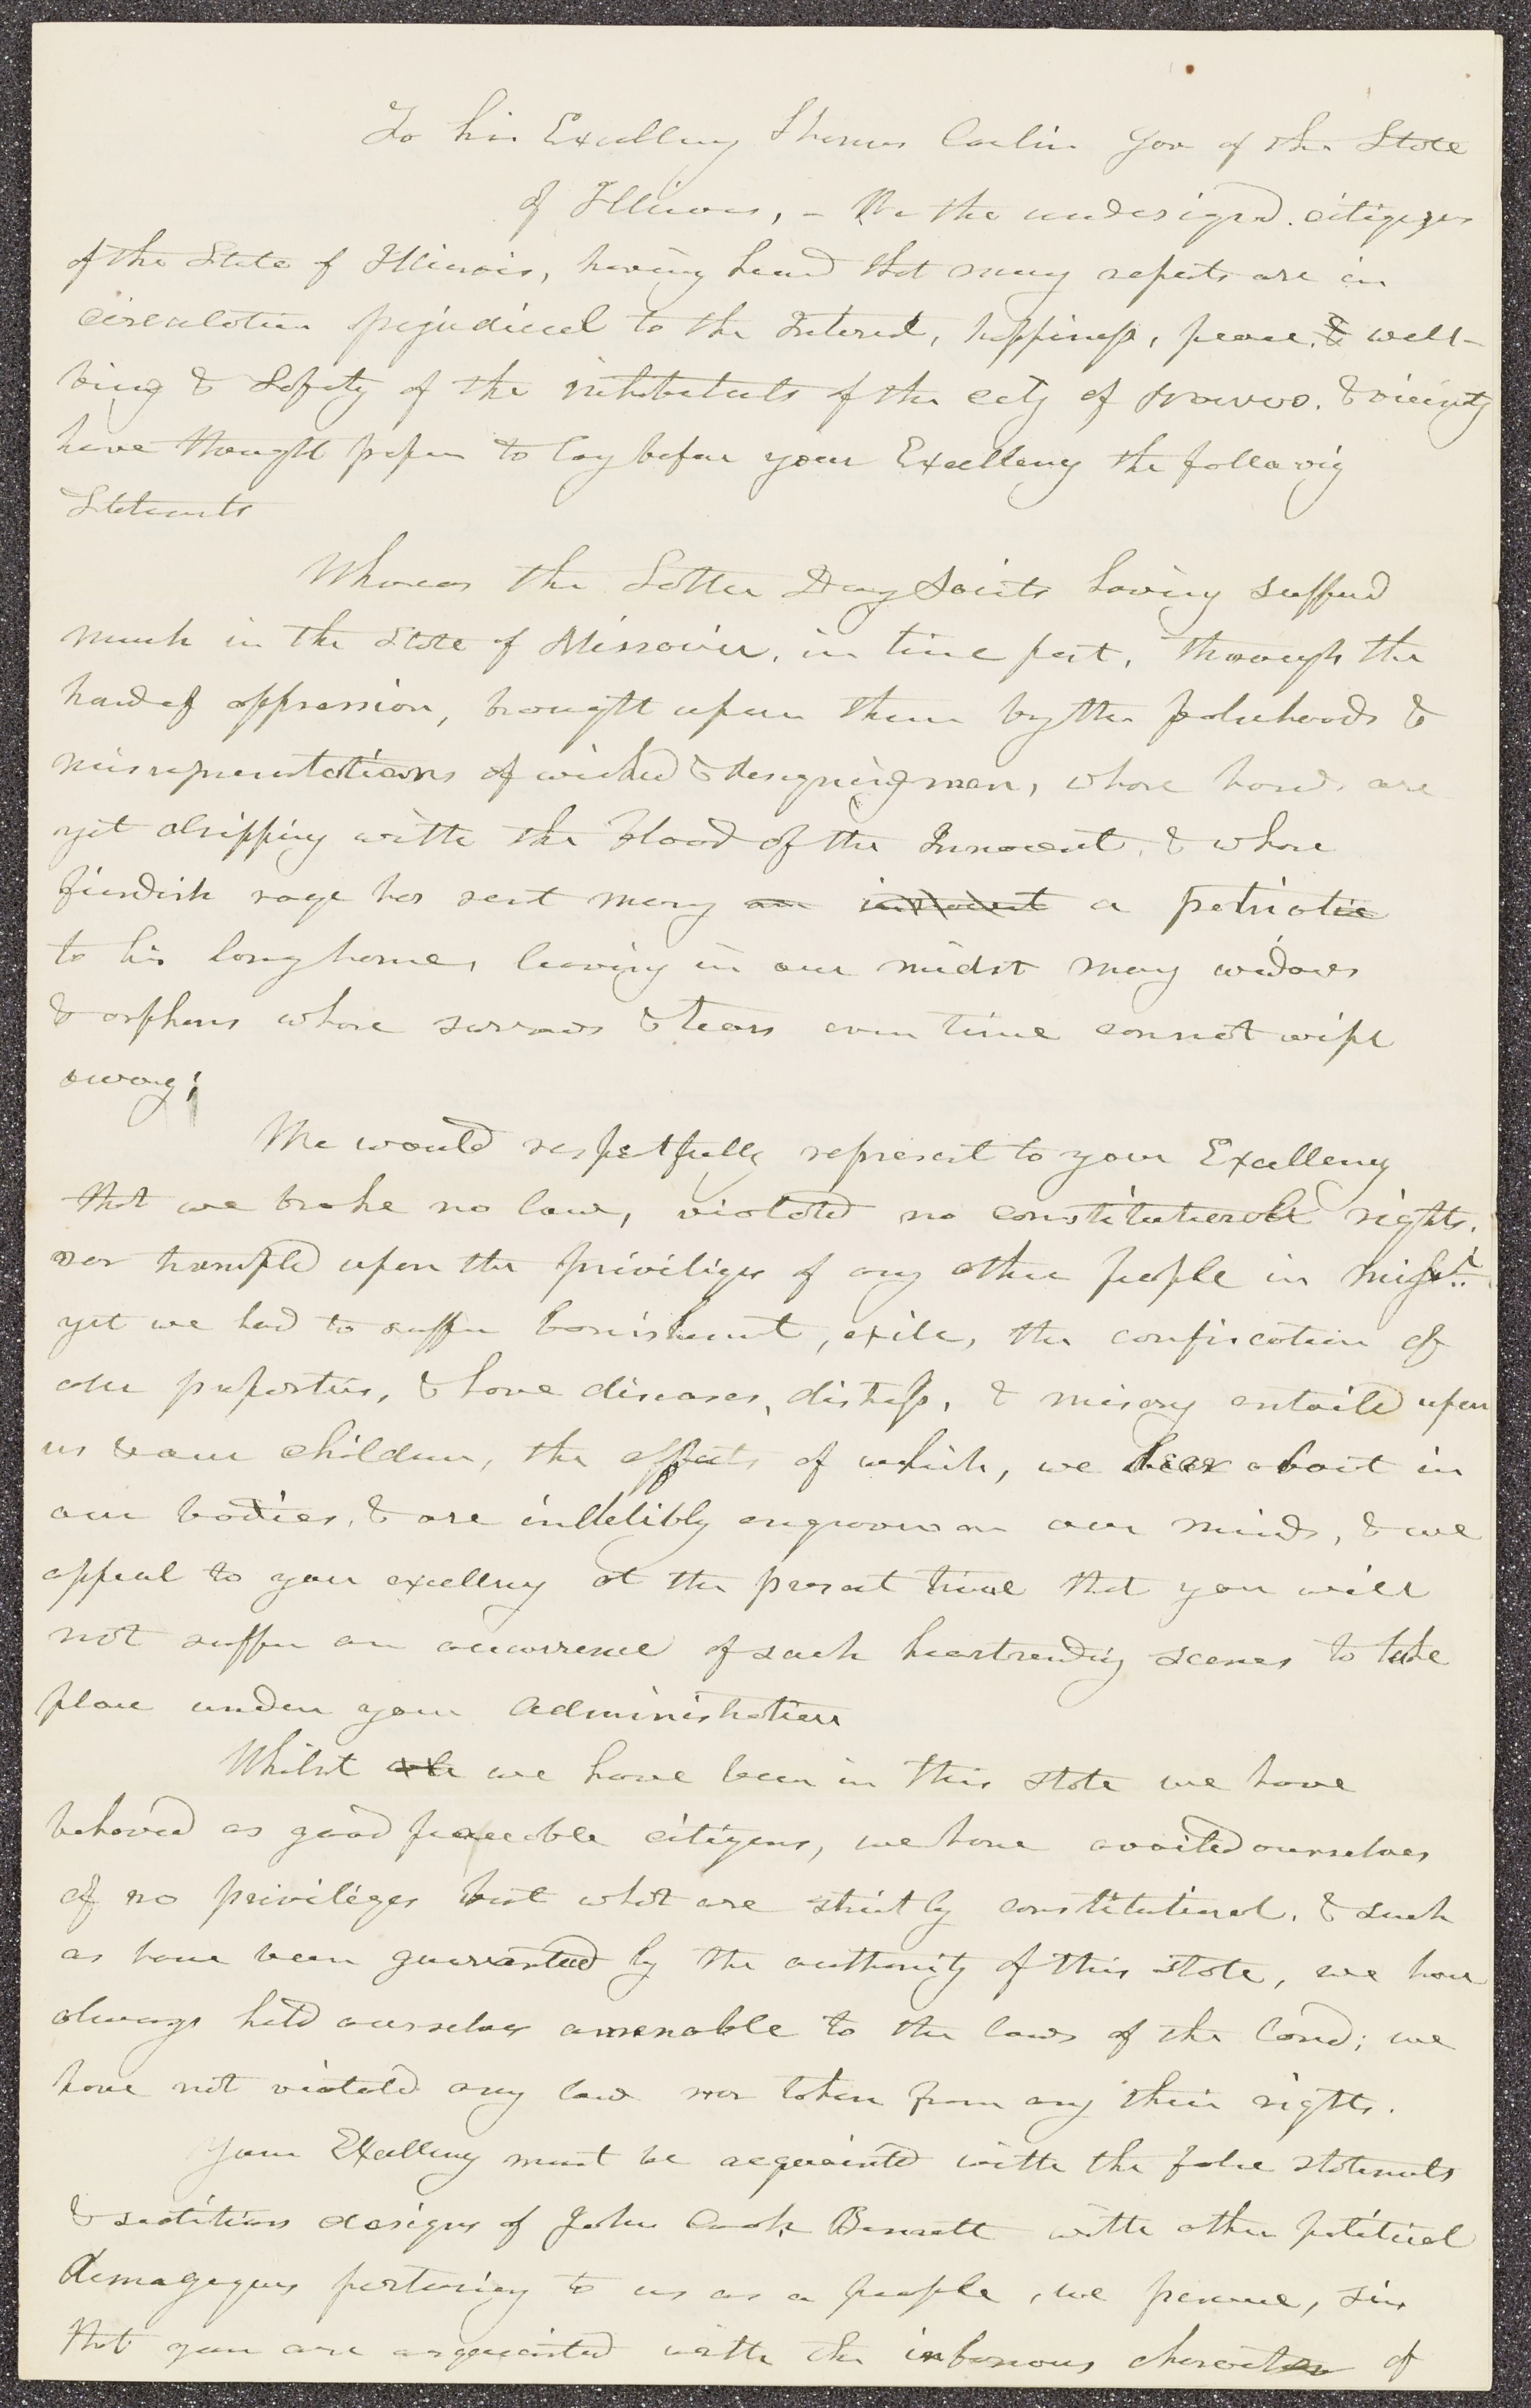 To his Excelleny Thomas Carlin Gov of the State
of Illinois, - We the undesignd. citizens
of the State of Illinois, having heard that many reports are in
circulation prejudicial to the Interest, happiness, peace, & well-
being & Safety of the inhabitants of the city of Nauvoo. & vicinity
have thought proper to lay before your Excelleny the followig
Statements
Whereas the Latter Day Saints having suffered
much in the State of Missouri, in time past, through the
hand of oppression, brought upon them by the falsehoods &
misrepresentations of wicked & designing men, whose hands are
yet dripping with the blood of the Innocent, & whose
fiendish rage has sent many an innocent a patriotic
to his long home, leaving in our midst many widows
& orphans whose sorrows & tears even time cannot wipe
away;
We would respetfully represent to your Excelleny
that we broke no law, violated no constitutional rights,
nor trampled upon the priviliges of any other people in Misso.
yet we had to suffer banishment, exile, the confiscation of
our properties, & have diseases, distress, & misery entaild upon
us & our children, the effects of which, we bear about in
our bodies, & are indelibly engraven on our minds, & we
appeal to your excelleny at the present time that you will
not suffer an occurrence of such heartrendig scenes to take
place under your administration
Whilst we have been in this state we have
behaved as good peaceable citizens, we have availed ourselves
of no privileges but what are strictly constitutional, & such
as have been guaranteed by the authority of this state, we have
always held ourselves amenable to the laws of the land; we
have not violated any law nor taken from any their rights.
Your Excelleny must be acquainted with the false statements
& seditious designs of John Cook Bennett with other political
demagogues pertaining to us as a people, we presume, sir,
that you are acquainted with the infamous character of